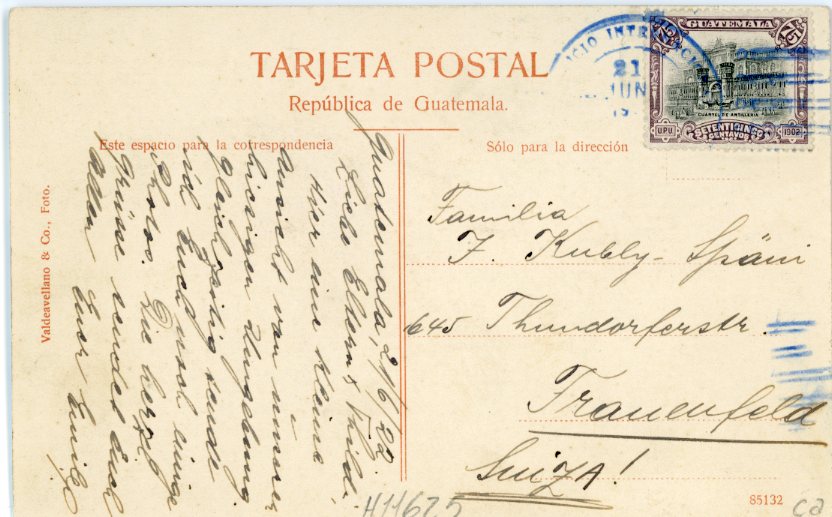 TARJETA POSTAL
República de Guatemala.
Este espacio para la correspondencia
Sólo para la dirección
Valdeavellano & Co., Foto.
Guatemala, 21/6/22.
Liebe Eltern & Thild.
Hier eine kleine
Ansicht von unserer
hiesigen Umgebung
gleichzeitig sende
ich Euch noch einige
Photos. Die herzl.
Grüsse sendet Euch
allen Euer Emil
Familia
J. Kubly-Späni
645 Thundorferstr.
Frauenfeld
Suiza!
H11625
85132
ca
GUATEMALA
75
75
CUARTEL DE ARTILLERIA
UPU
SETENTICINCO
CENTAVOS
1902
21
JUN